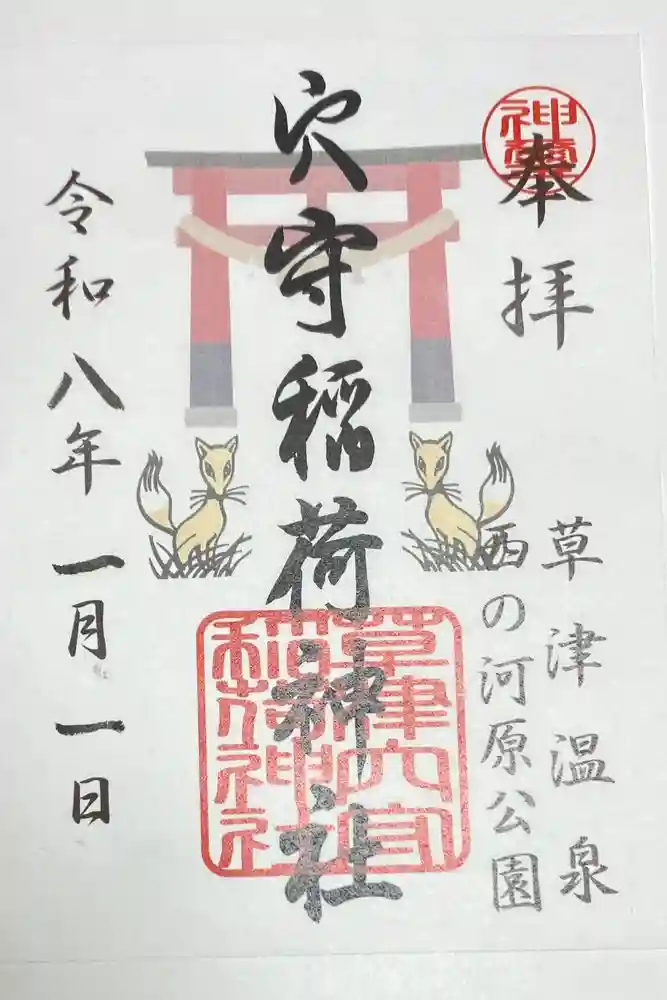 奉拝
草津温泉
西の河原公園
穴守稲荷神社
草津穴守
稲荷神社
令和八年一月一日